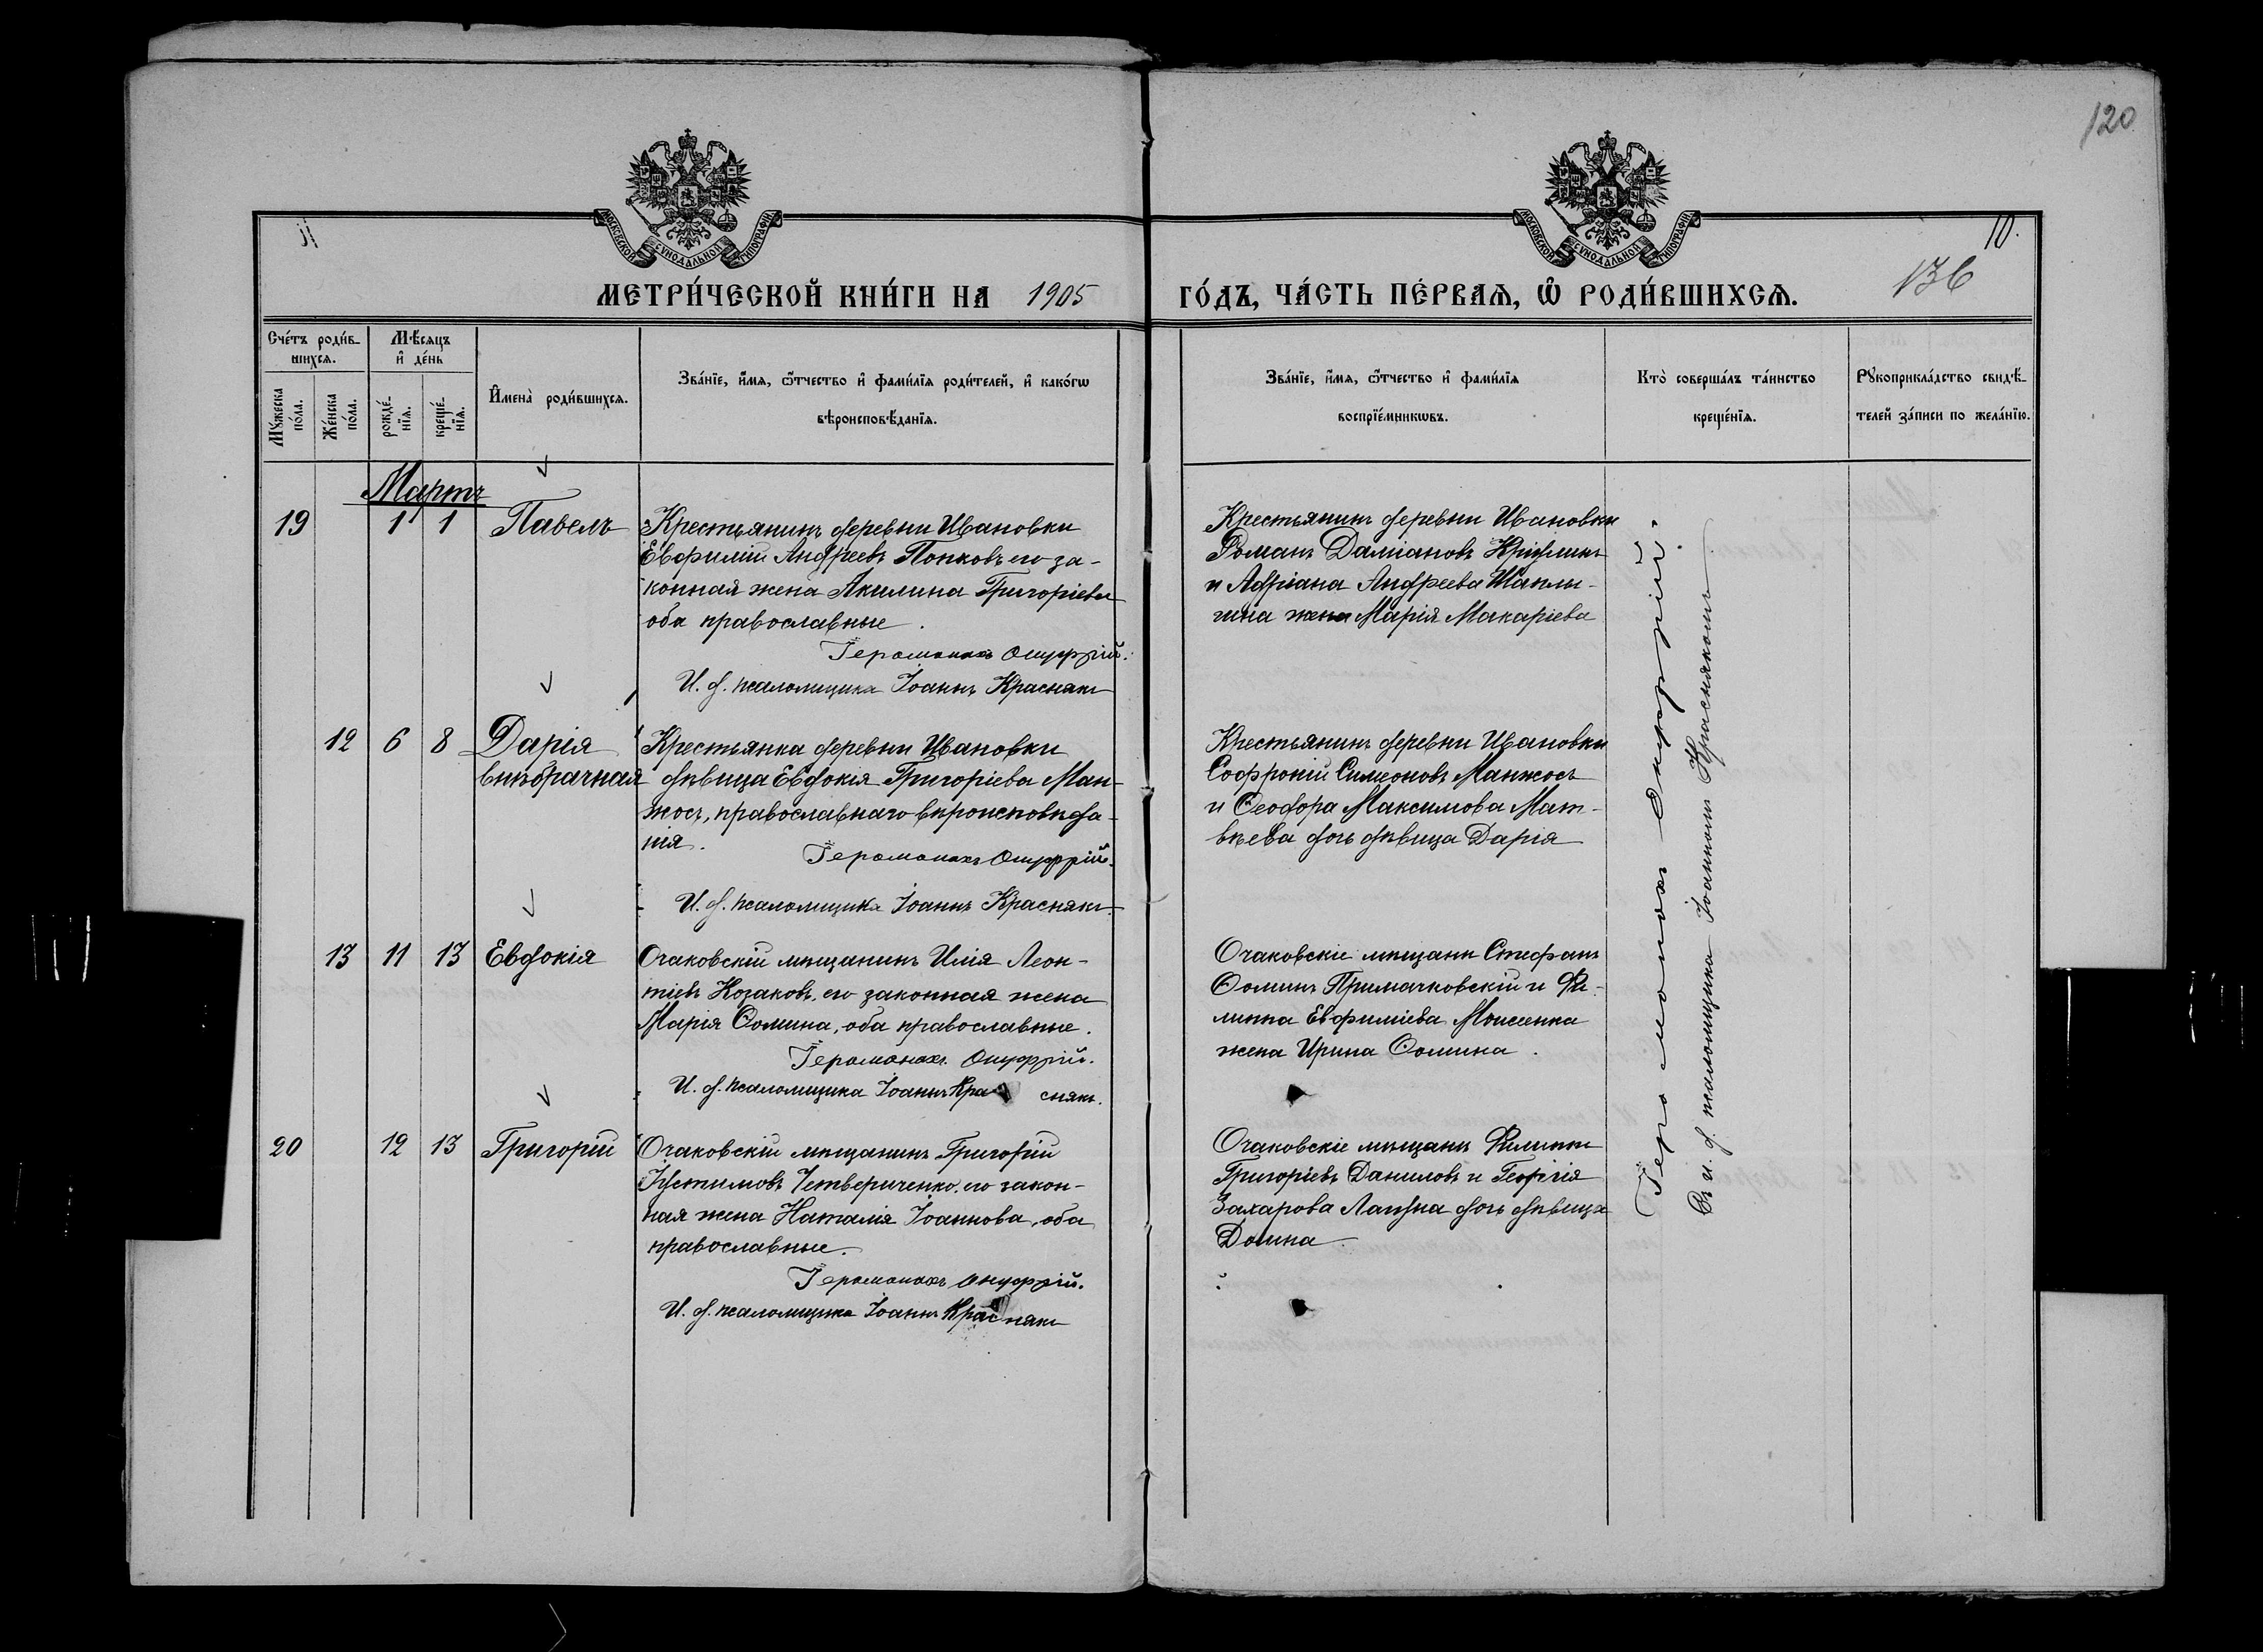 120
МОСКОВСКОЙ СѴНОДАЛЬНОЙ ТИПОГРАФІИ
МОСКОВСКОЙ СѴНОДАЛЬНОЙ ТИПОГРАФІИ
10.
136
МЕТРИ́ЧЕСКОЙ КНИ́ГИ НА 1905 ГО́ДЪ, ЧА́СТЬ ПЕ́РВАѦ, Ѽ РОДИ́ВШИХСѦ.
Сче́тъ роди́в-
шихсѧ.
Мѣ́сѧцъ
и҆ де́нь
Мꙋ́жеска
по́ла.
Же́нска
по́ла.
рожде́-
нїѧ.
креще́-
нїѧ.
И҆мена̀ роди́вшихсѧ.
Зва́нїе, и҆́мѧ, ѻ҆́тчество и҆ фами́лїѧ роди́телей, и҆ како́гѡ
вѣроисповѣ́данїѧ.
Зва́нїе, и҆́мѧ, ѻ҆́тчество и҆ фами́лїѧ
воспрїе́мникѡвъ.
Кто̀ соверша́лъ та́инство
креще́нїѧ.
Рꙋкоприкла́дство свидѣ́-
телей за́писи по жела́нїю.
Мартъ
19 1 1 Павелъ
Крестьянинъ деревни Ивановки
Евфимій Андреевъ Попковъ его за-
конная жена Акилина Григоріева
оба православные.
Іеромонахъ Онуфрій.
И. д. псаломщика Іоаннъ Краснякъ
Крестьянинъ деревни Ивановки
Романъ Даміановъ
и Адріана Андреева Шаплы-
гина жена Марія Макаріева
12 6 8 Дарія
внѣбрачная
Крестьянка деревни Ивановки
дѣвица Евдокія Григоріева Ман-
жосъ, православнаго вѣроисповѣда-
нія.
Іеромонахъ Онуфрій.
И. д. псаломщика Іоаннъ Краснякъ.
Крестьянинъ деревни Ивановки
Софроній Симеоновъ Манжосъ
и Ѳеодора Максимова Мат-
вѣева дочь дѣвица Дарія
13 11 13 Евдокія
Очаковскій мѣщанинъ Илія Леон-
тіевъ Козаковъ, его законная жена
Марія Ѳомина, оба православные.
Іеромонахъ Онуфрій.
И. д. псаломщика Іоаннъ Кра снякъ.
Очаковскіе мѣщане Стефанъ
Ѳоминъ Примачковскій и Фи-
липпа Евфиміева Моисеенка
жена Ирина Ѳомина.
20 12 13 Григорій
Очаковскій мѣщанинъ Григорій
Іустимовъ Четвериченко, его закон-
ная жена Наталія Іоаннова, оба
православные.
Іеромонахъ Онуфрій.
И. д. псаломщика Іоаннъ Краснякъ
Очаковскіе мѣщане Филиппъ
Григоріевъ Даниловъ и Георгія
Захарова дочь дѣвица
Домна
Іеромонахъ Онуфрій.
Съ и. д. псаломщика Іоанномъ Краснякомъ